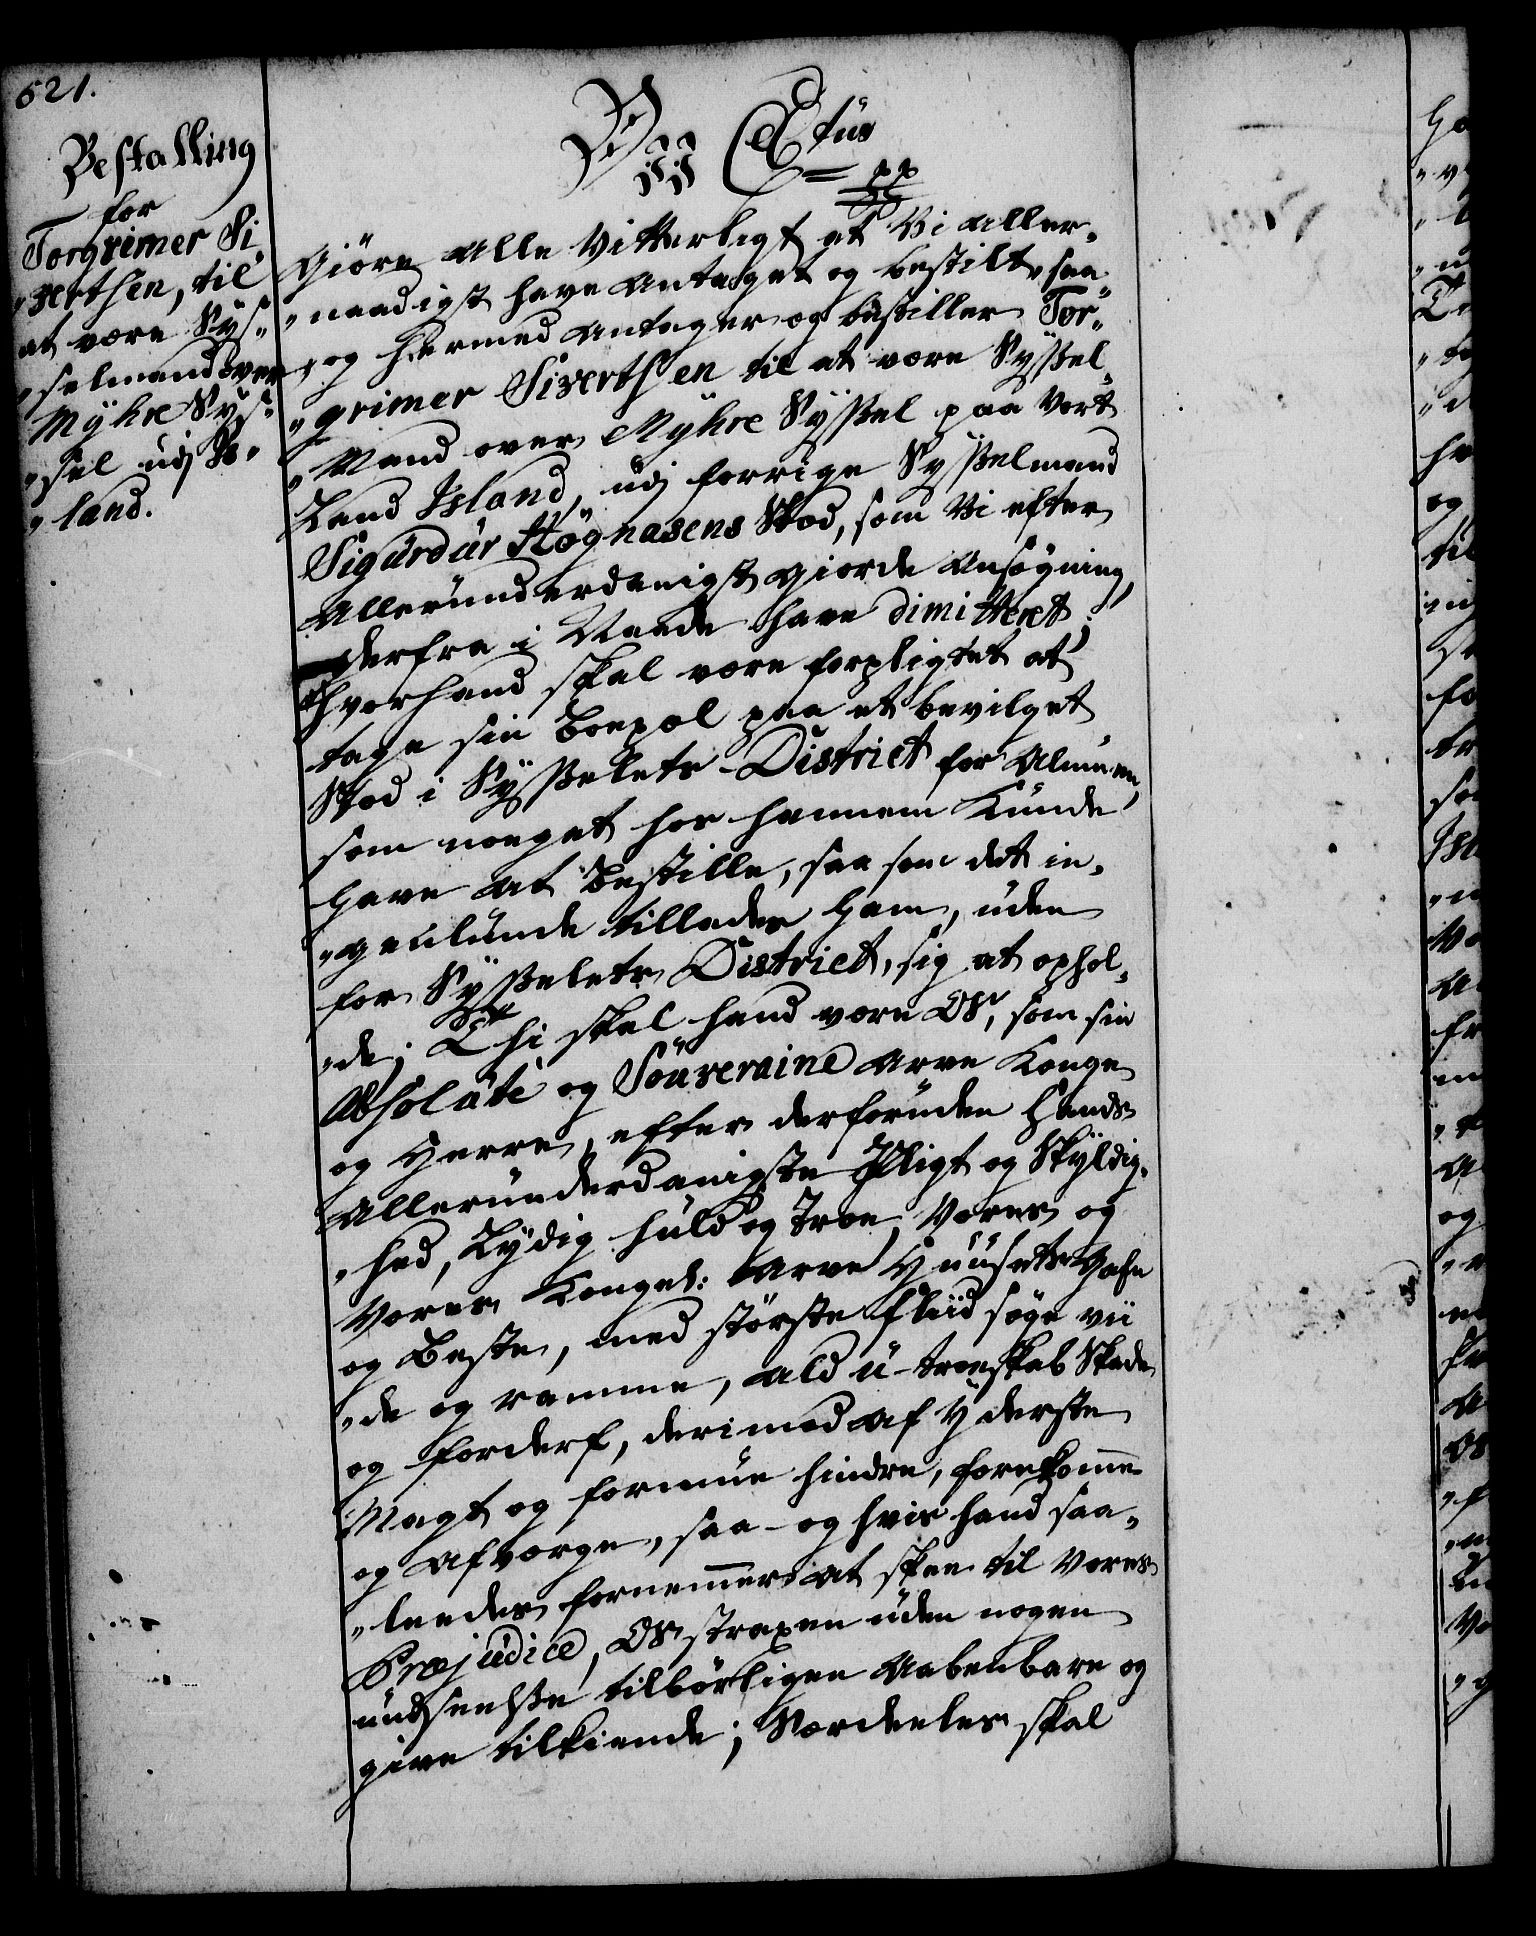 521.
Bestalling
for
Torgrimer Si
"verthsen, til
at være Sys-
"selmand over
Myhre Sys-
"sel udj Is-
"land.
Giöre Alle Vitterligt at Vi Aller-
"naadigst have Antaget og bestilt, saa
"og hermed Antager og bestiller Tor-
"grimer Siverthsen til at være Sÿssel-
"Mand over Myhre Sÿssel paa Vort
Land Island, udj forrige Sÿsselmand
Sigurdur Högnasens Stæd, som Vi efter
Allerunderdanigst giorde Ansøgning,
derfra i Naade have dimitteret;
hvor hand skal være forpligtet at
tage sin Boepæl paa et bevilget
Stæd i Sÿsselets District for Almuen,
som noeget hos hannem Kunde
have at Bestille, saa som det in-
"genlunde tillades ham, uden
for Sÿsselets District, sig at ophol-
"de; Thi skal hand være OS, som sin
Absolute og Souveraine Arve Konge
og Herre, efter derforuden hands
Allerunderdanigste Pligt og Skÿldig-
"hed, Lÿdig huld og Troe, Vores og
Vores Kongel: Arve Huusets Gafn
og Beste, med störste Fliid söge vii
"de og ramme, ald u-troeskab Skade
og forderf, derimod af Yderste
Magt og formue hindre, forekomme
og Afværge, saa- og hvis hand saa-
"leedes fornemmer at skee til Vores
Præjudice, OS straxen uden nogen
undseelse tilbörligen Aabenbare og
give tilkiende; Særdeeles skal